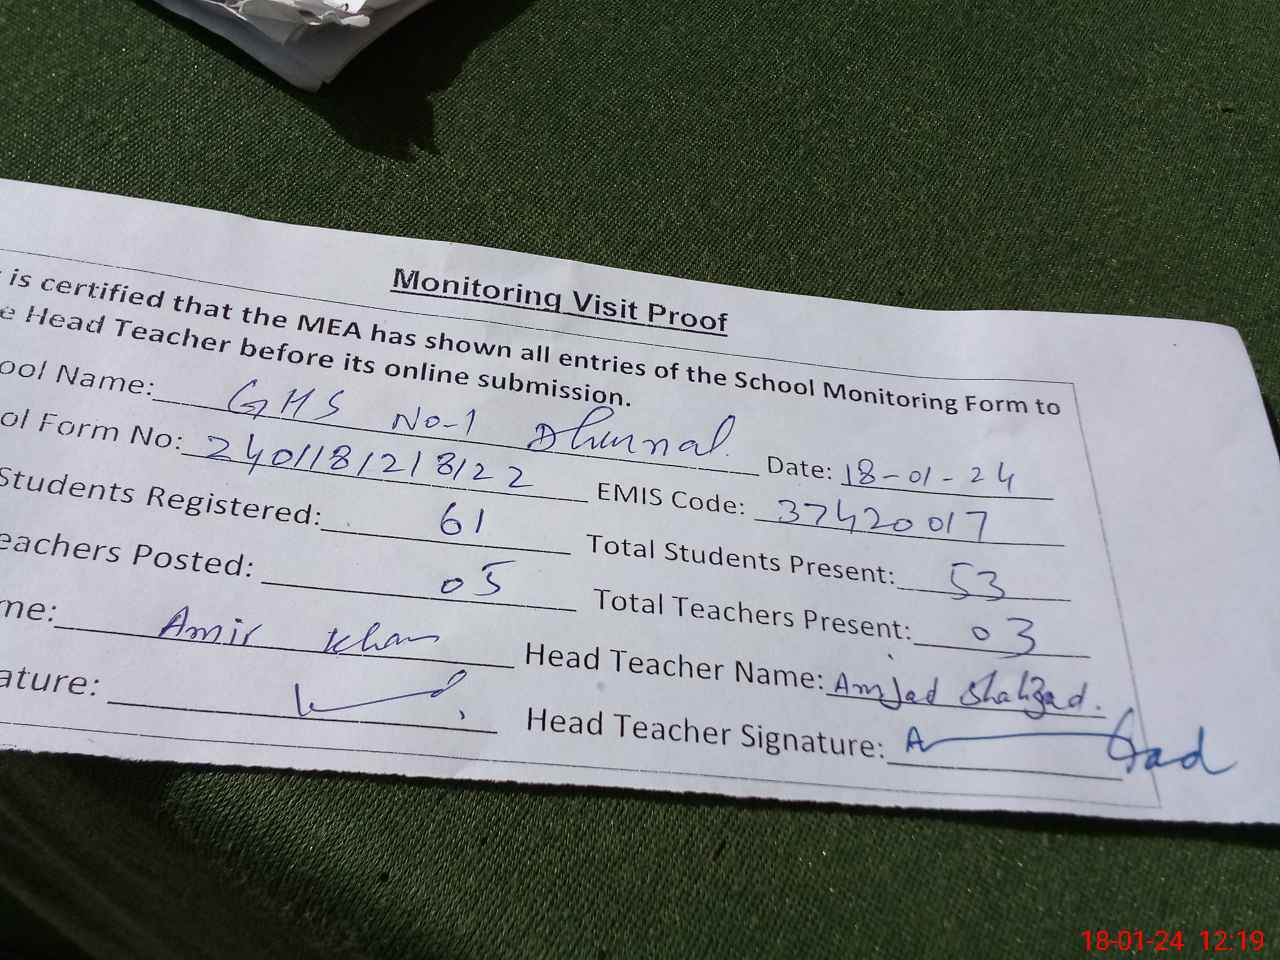 Monitoring Visit Proof
is certified that the MEA has shown all entries of the School Monitoring Form to
e Head Teacher before its online submission.
ool Name: GHS No-1 Dhurnal. Date: 18-01-24
ol Form No: 2401181218122 EMIS Code: 37420017
Students Registered: 61 Total Students Present: 53
eachers Posted: 05 Total Teachers Present: 03
me: Amir Khan Head Teacher Name: Amjad Shahzad.
ature: Head Teacher Signature:
18-01-24 12:19